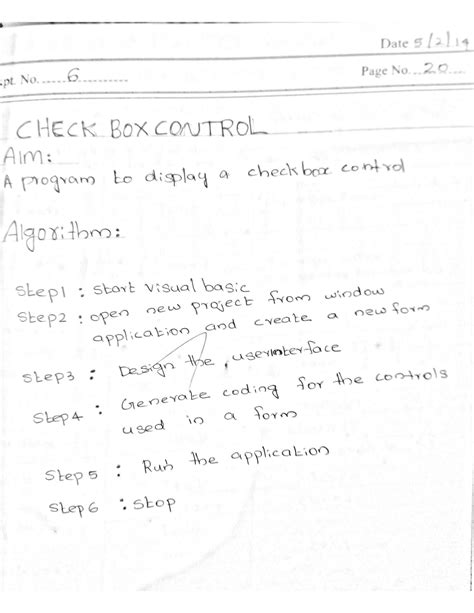 Date 5/2/19
pt. No. 6
Page No. 20
CHECK BOX CONTROL
Aim:
A program to display a checkbox control
Algorithm:
Step1 : start visual basic
Step2 : open new project from window
application and create a new form
Step3 : Design the, userinterface
Step4 : Generate coding for the controls
used in a form
Step 5 : Run the application
Step 6 : Stop